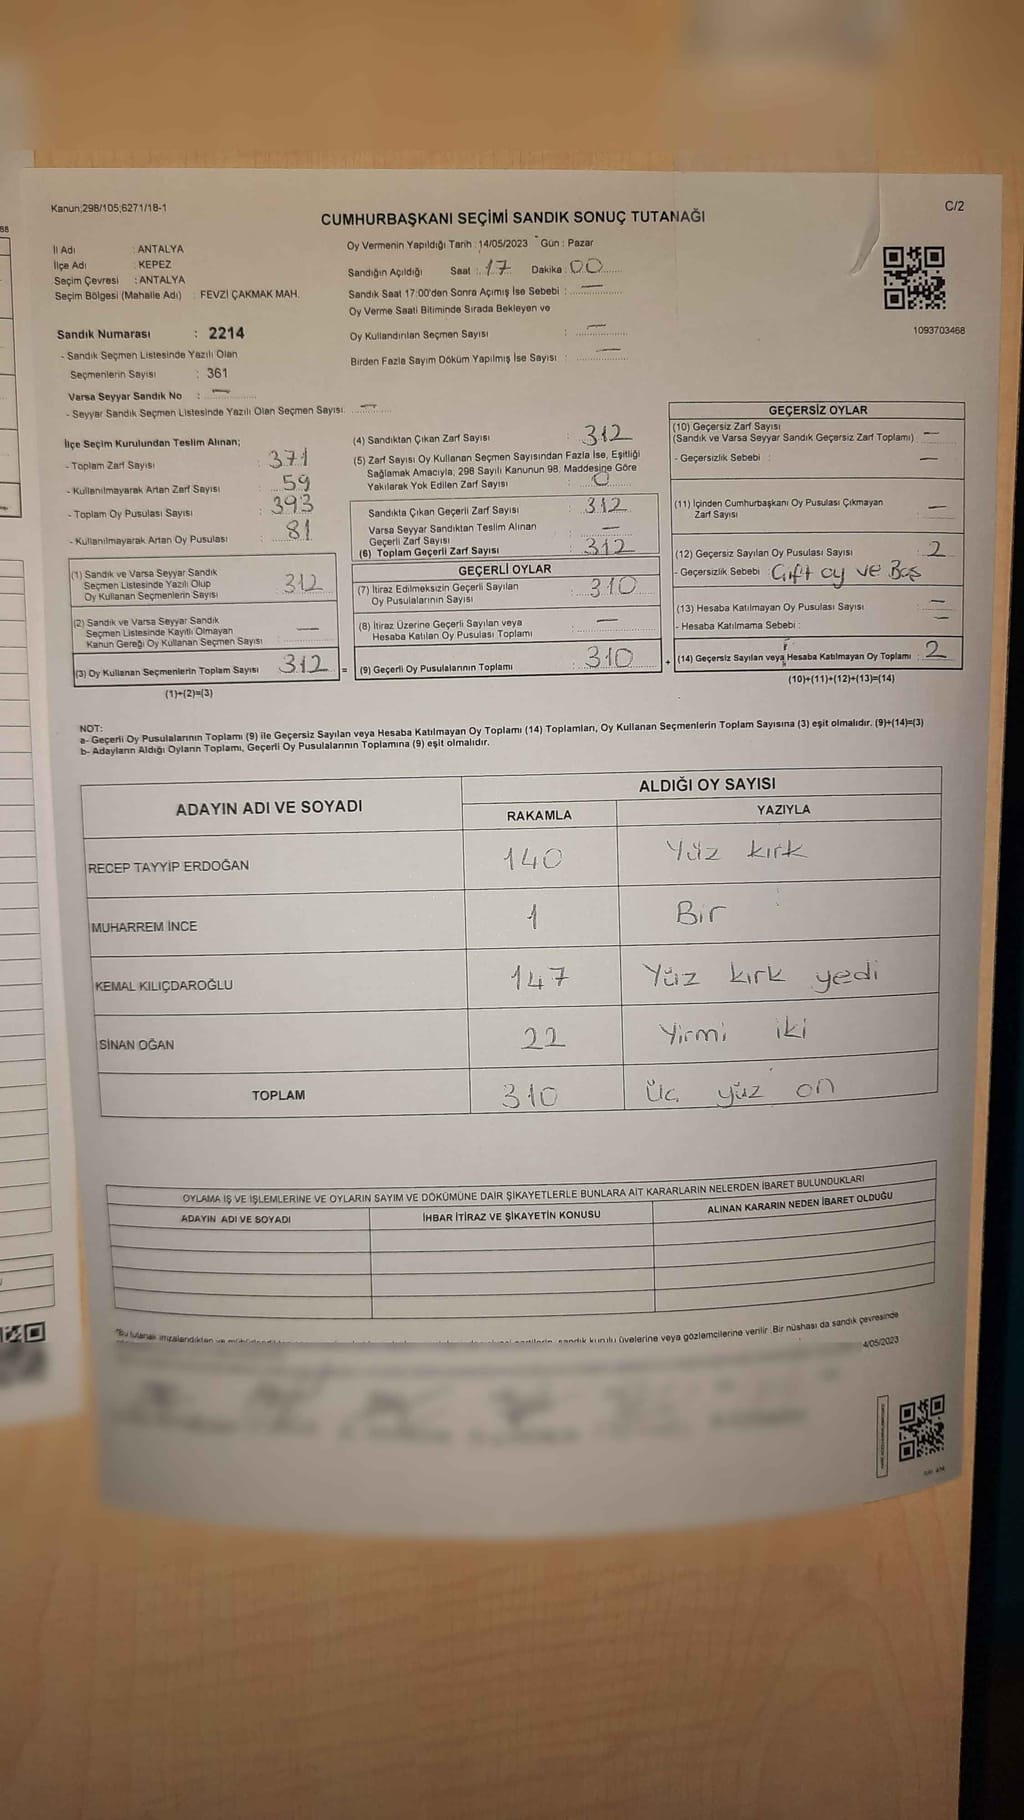 Kanun;298/105;6271/18-1
C/2
CUMHURBAŞKANI SEÇİMİ SANDIK SONUÇ TUTANAĞI
İl Adı : ANTALYA
İlçe Adı : KEPEZ
Seçim Çevresi : ANTALYA
Seçim Bölgesi (Mahalle Adı) : FEVZİ ÇAKMAK MAH.
Sandık Numarası : 2214
- Sandık Seçmen Listesinde Yazılı Olan
Seçmenlerin Sayısı : 361
Varsa Seyyar Sandık No : —
- Seyyar Sandık Seçmen Listesinde Yazılı Olan Seçmen Sayısı: —
Oy Vermenin Yapıldığı Tarih : 14/05/2023 Gün : Pazar
Sandığın Açıldığı Saat : 17 Dakika : 00
Sandık Saat 17:00'den Sonra Açımış İse Sebebi : —
Oy Verme Saati Bitiminde Sırada Bekleyen ve
Oy Kullandırılan Seçmen Sayısı : —
Birden Fazla Sayım Döküm Yapılmış İse Sayısı : —
1093703468
İlçe Seçim Kurulundan Teslim Alınan;
- Toplam Zarf Sayısı : 371
- Kullanılmayarak Artan Zarf Sayısı : 59
- Toplam Oy Pusulası Sayısı : 393
- Kullanılmayarak Artan Oy Pusulası : 81
(1) Sandık ve Varsa Seyyar Sandık
Seçmen Listesinde Yazılı Olup
Oy Kullanan Seçmenlerin Sayısı : 312
(2) Sandık ve Varsa Seyyar Sandık
Seçmen Listesinde Kayıtlı Olmayan
Kanun Gereği Oy Kullanan Seçmen Sayısı : —
(3) Oy Kullanan Seçmenlerin Toplam Sayısı : 312 =
(1)+(2)=(3)
(4) Sandıktan Çıkan Zarf Sayısı : 312
(5) Zarf Sayısı Oy Kullanan Seçmen Sayısından Fazla İse, Eşitliği
Sağlamak Amacıyla, 298 Sayılı Kanunun 98. Maddesine Göre
Yakılarak Yok Edilen Zarf Sayısı : 0
Sandıkta Çıkan Geçerli Zarf Sayısı : 312
Varsa Seyyar Sandıktan Teslim Alınan
Geçerli Zarf Sayısı : —
(6) Toplam Geçerli Zarf Sayısı : 312
GEÇERLİ OYLAR
(7) İtiraz Edilmeksizin Geçerli Sayılan
Oy Pusulalarının Sayısı : 310
(8) İtiraz Üzerine Geçerli Sayılan veya
Hesaba Katılan Oy Pusulası Toplamı : —
(9) Geçerli Oy Pusulalarının Toplamı : 310 +
GEÇERSİZ OYLAR
(10) Geçersiz Zarf Sayısı
(Sandık ve Varsa Seyyar Sandık Geçersiz Zarf Toplamı) : —
- Geçersizlik Sebebi : —
(11) İçinden Cumhurbaşkanı Oy Pusulası Çıkmayan
Zarf Sayısı : —
(12) Geçersiz Sayılan Oy Pusulası Sayısı : 2
- Geçersizlik Sebebi : Çift oy ve Boş
(13) Hesaba Katılmayan Oy Pusulası Sayısı : —
- Hesaba Katılmama Sebebi : —
(14) Geçersiz Sayılan veya Hesaba Katılmayan Oy Toplamı : 2
(10)+(11)+(12)+(13)=(14)
NOT:
a- Geçerli Oy Pusulalarının Toplamı (9) ile Geçersiz Sayılan veya Hesaba Katılmayan Oy Toplamı (14) Toplamları, Oy Kullanan Seçmenlerin Toplam Sayısına (3) eşit olmalıdır. (9)+(14)=(3)
b- Adayların Aldığı Oyların Toplamı, Geçerli Oy Pusulalarının Toplamına (9) eşit olmalıdır.
ADAYIN ADI VE SOYADI
ALDIĞI OY SAYISI
RAKAMLA YAZIYLA
RECEP TAYYİP ERDOĞAN 140 Yüz kırk
MUHARREM İNCE 1 Bir
KEMAL KILIÇDAROĞLU 147 Yüz kırk yedi
SİNAN OĞAN 22 Yirmi iki
TOPLAM 310 Üç yüz on
OYLAMA İŞ VE İŞLEMLERİNE VE OYLARIN SAYIM VE DÖKÜMÜNE DAİR ŞİKAYETLERLE BUNLARA AİT KARARLARIN NELERDEN İBARET BULUNDUKLARI
ADAYIN ADI VE SOYADI İHBAR İTİRAZ VE ŞİKAYETİN KONUSU ALINAN KARARIN NEDEN İBARET OLDUĞU
"Bu tutanak imzalandıktan ve sandık kurulu üyelerine veya gözlemcilerine verilir. Bir nüshası da sandık çevresinde
4/05/2023